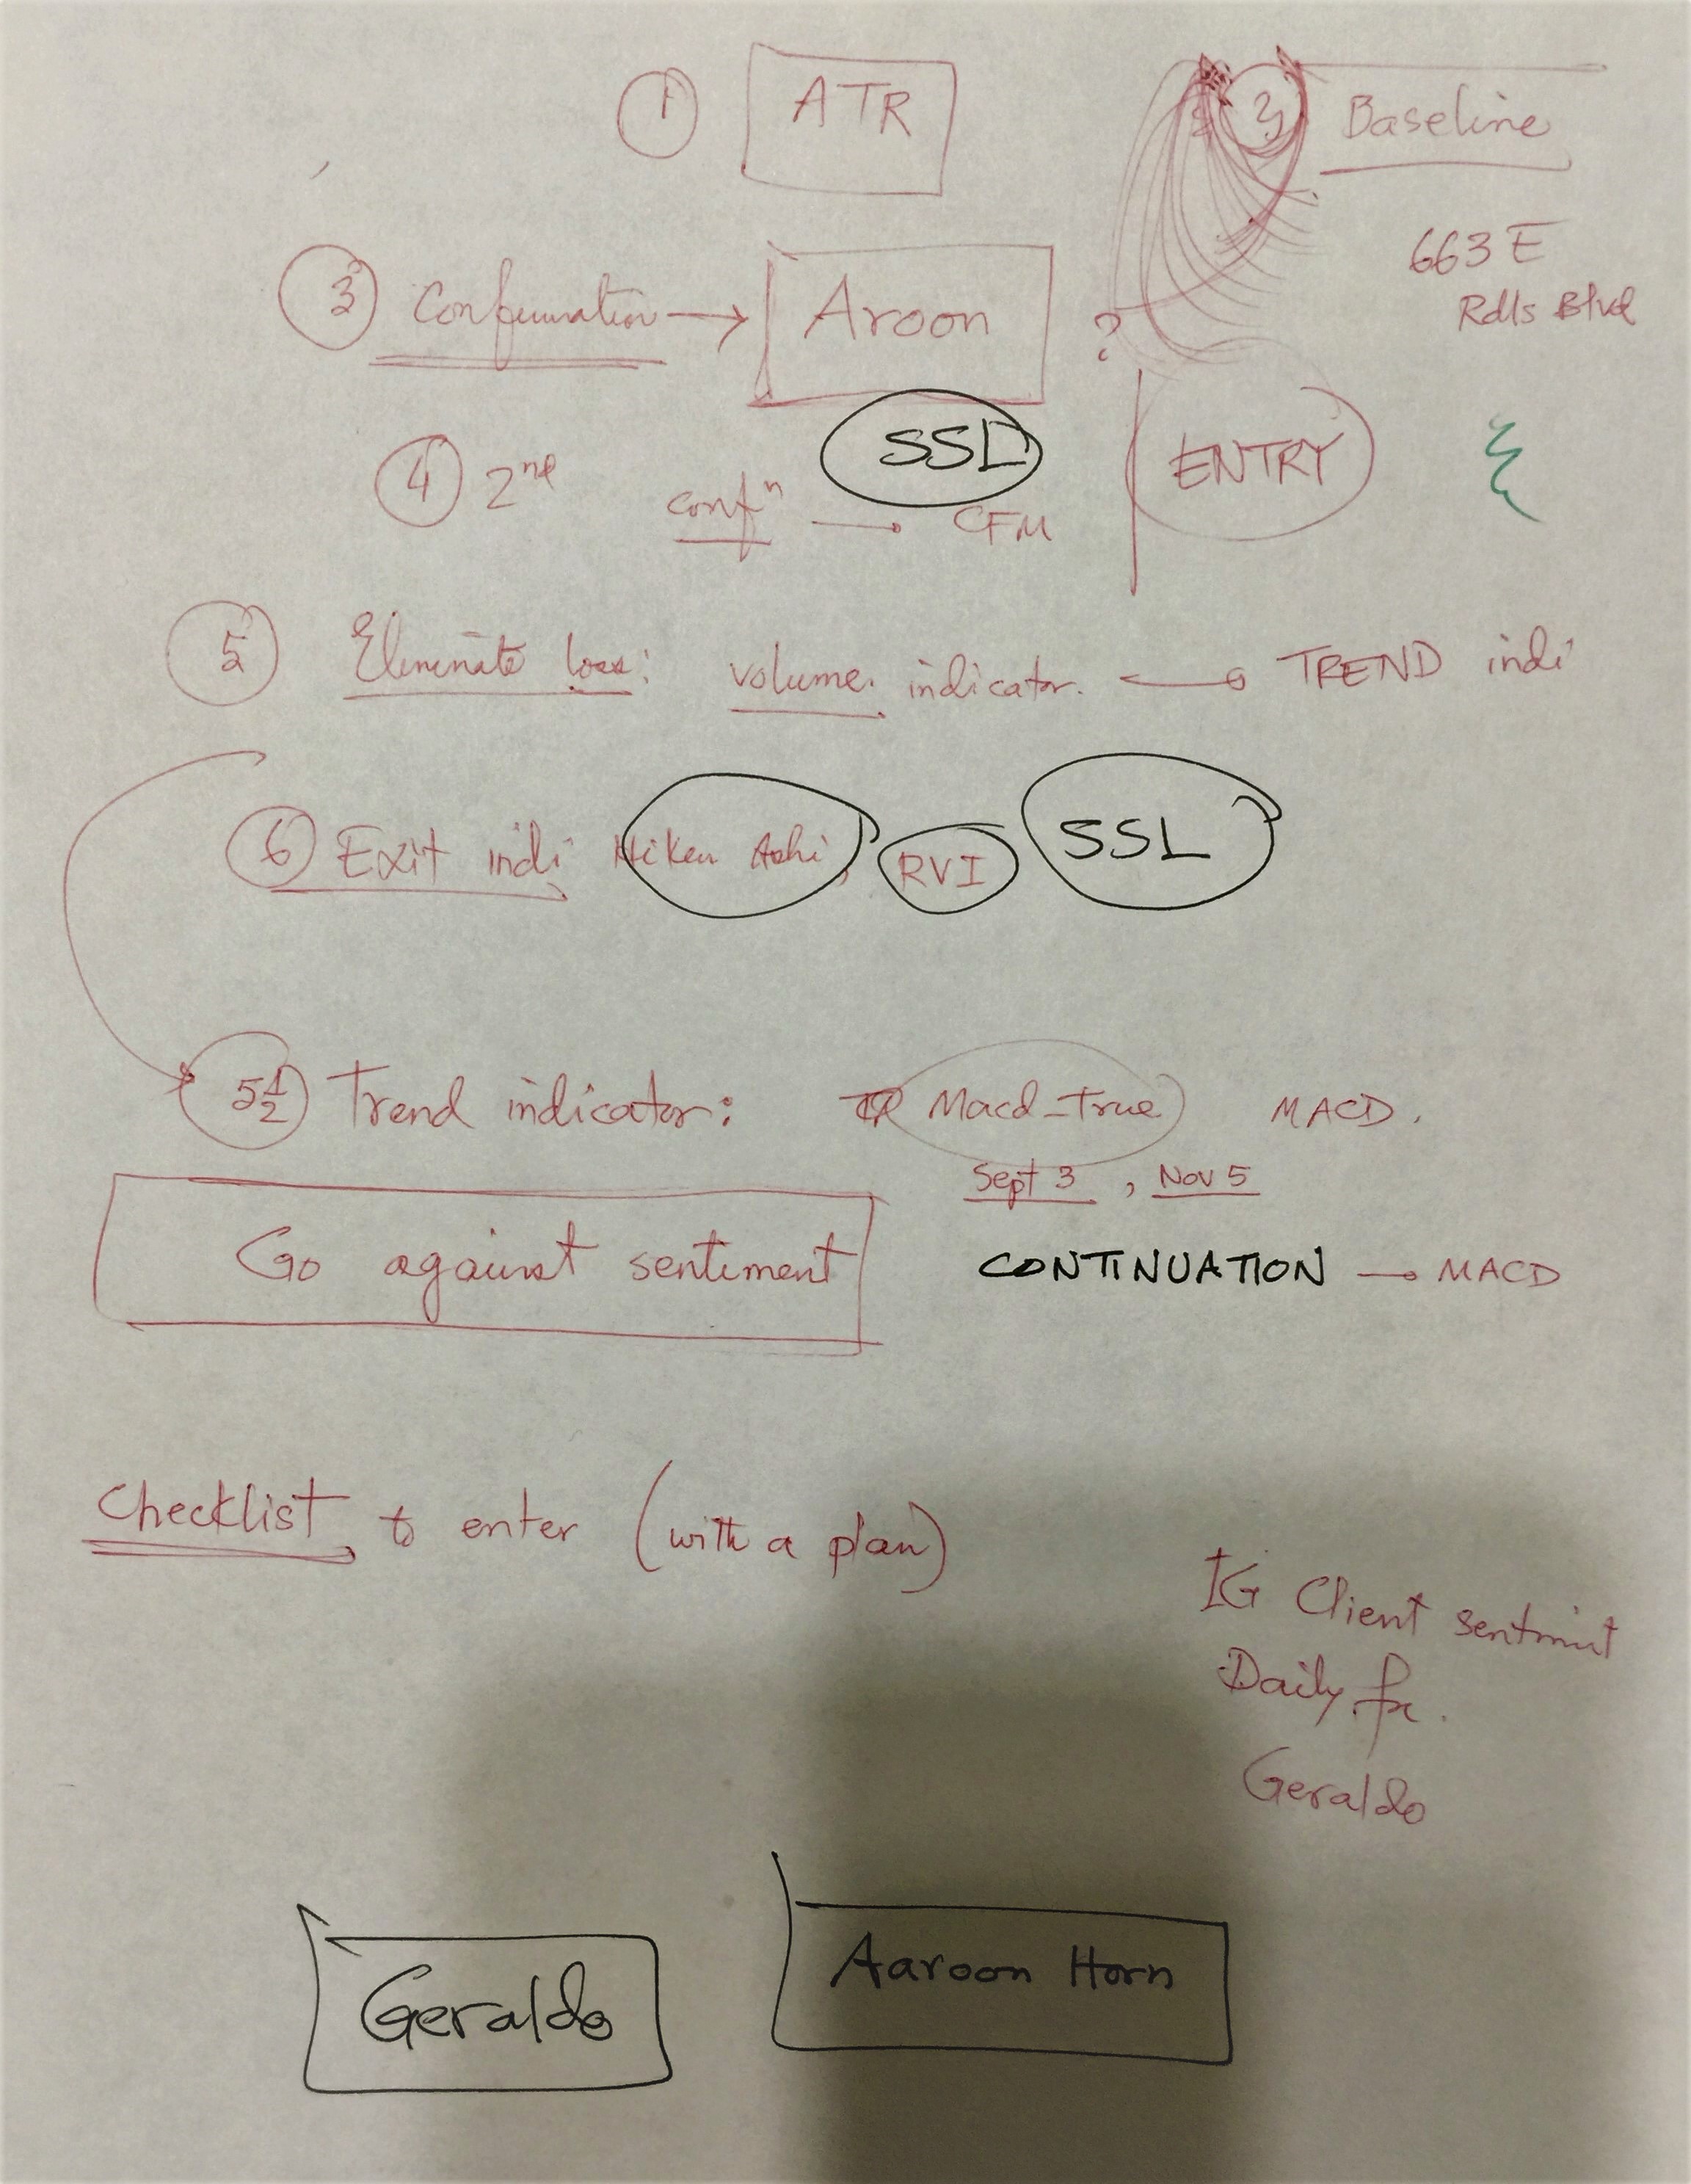 ① ATR
Baseline
663 E
Rdls Blvd
③ Confirmation → Aroon ?
④ 2nd confn → CFM
SSL
ENTRY
⑤ Eliminate loss: volume indicator. TREND indi
⑥ Exit indi Hiken Ashi, RVI SSL
5½ Trend indicator: Macd_True MACD.
Sept 3, Nov 5
Go against sentiment
CONTINUATION → MACD
Checklist to enter (with a plan)
IG Client sentimnt
Daily fx.
Geraldo
Geraldo
Aaroon Horn